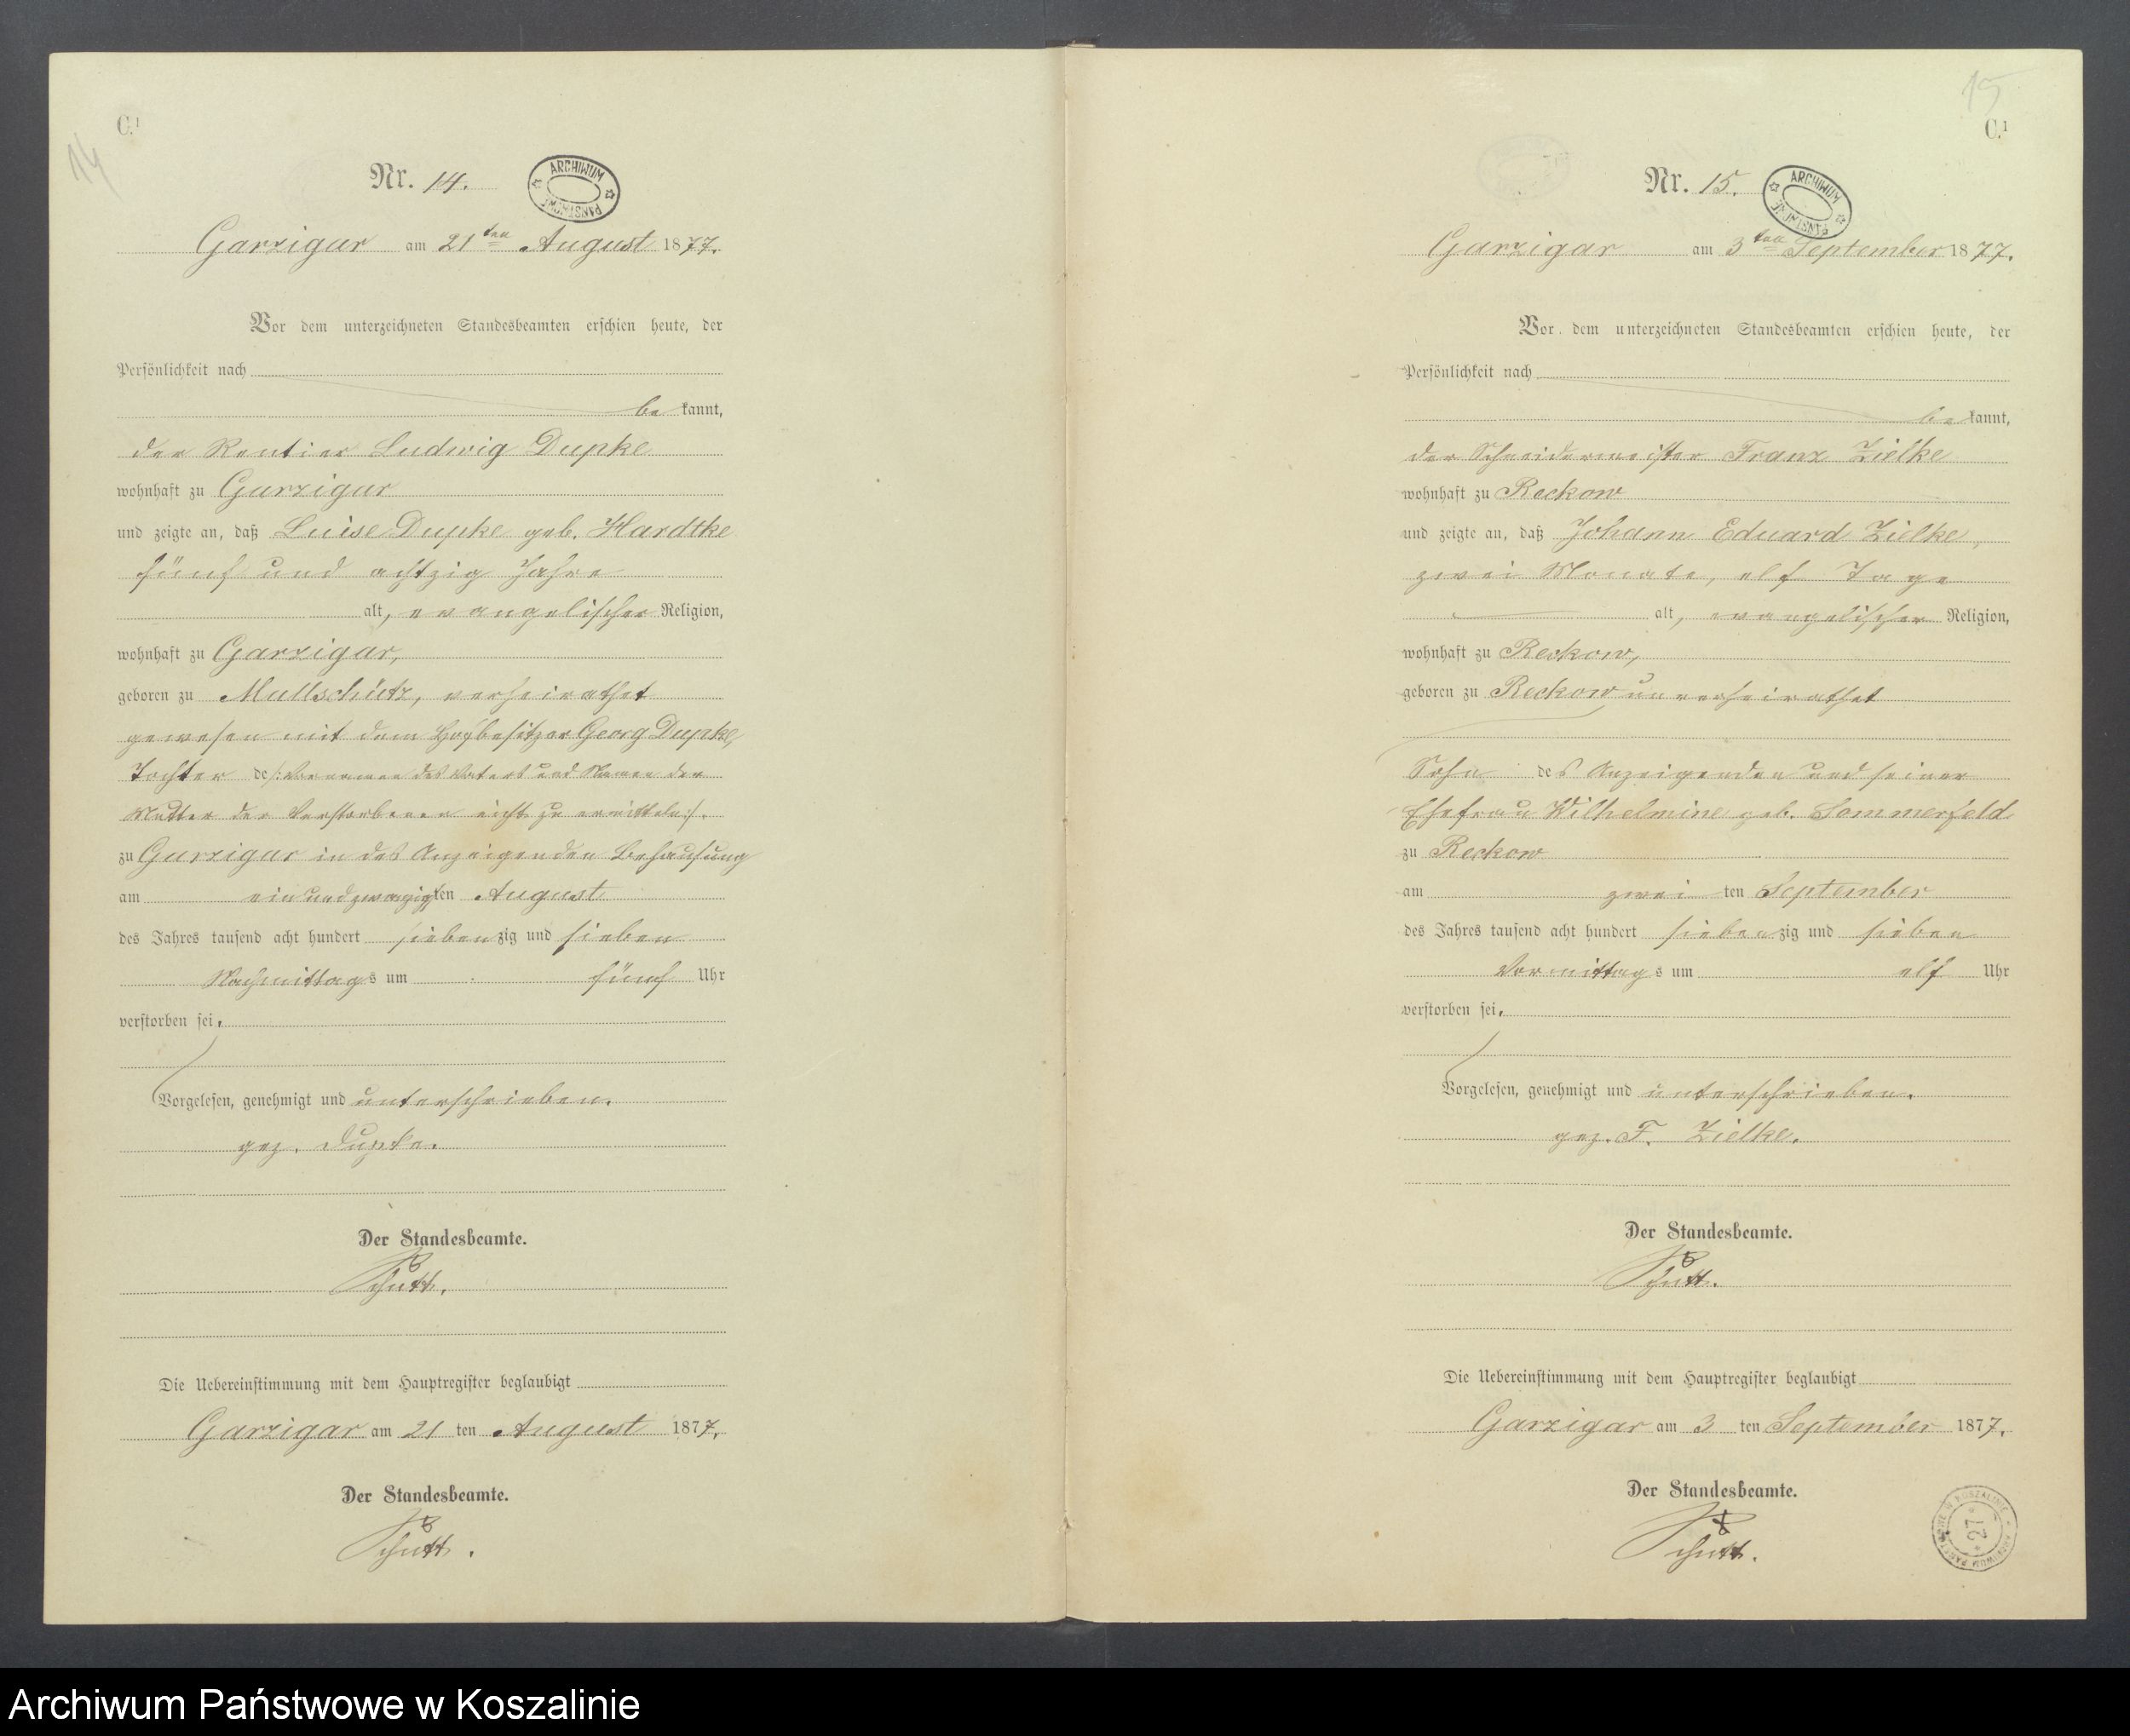 C.¹
14
Nr. 14.
ARCHIWUM PAŃSTWOWE
Garzigar am 21ten August 1877.
Vor dem unterzeichneten Standesbeamten erschien heute, der
Persönlichkeit nach
be kannt,
der Rentier Ludwig Dupke
wohnhaft zu Garzigar
und zeigte an, daß Luise Dupke geb. Hardtke
fünf und achtzig Jahre
alt, evangelischer Religion,
wohnhaft zu Garzigar,
geboren zu Mallschütz, verheirathet
gewesen mit dem Hofbesitzer Georg Dupke,
Tochter de /: Vornamen des Vaters und Namen der
Mutter der Verstorbenen nicht zu ermitteln :/.
zu Garzigar in des Anzeigenden Behausung
am ein und zwanzigsten August
des Jahres tausend acht hundert siebenzig und sieben
Nachmittags um fünf Uhr
verstorben sei.
Vorgelesen, genehmigt und unterschrieben.
gez. Dupke.
Der Standesbeamte.
Schütt.
Die Uebereinstimmung mit dem Hauptregister beglaubigt
Garzigar am 21 ten August 1877.
Der Standesbeamte.
Schütt.
15
C.¹
Nr. 15.
ARCHIWUM PAŃSTWOWE
Garzigar am 3ten September 1877.
Vor dem unterzeichneten Standesbeamten erschien heute, der
Persönlichkeit nach
be kannt,
der Schneidermeister Franz Zielke
wohnhaft zu Reckow
und zeigte an, daß Johann Eduard Zielke,
zwei Monate, elf Tage
alt, evangelischer Religion,
wohnhaft zu Reckow,
geboren zu Reckow unverheirathet
Sohn des Anzeigenden und seiner
Ehefrau Wilhelmine geb. Sommerfeld
zu Reckow
am zwei ten September
des Jahres tausend acht hundert siebenzig und sieben
Vormittags um elf Uhr
verstorben sei.
Vorgelesen, genehmigt und unterschrieben.
gez. F. Zielke.
Der Standesbeamte.
Schütt.
Die Uebereinstimmung mit dem Hauptregister beglaubigt
Garzigar am 3 ten September 1877.
Der Standesbeamte.
Schütt.
ARCHIWUM PAŃSTWOWE W KOSZALINIE * 27 *
Archiwum Państwowe w Koszalinie